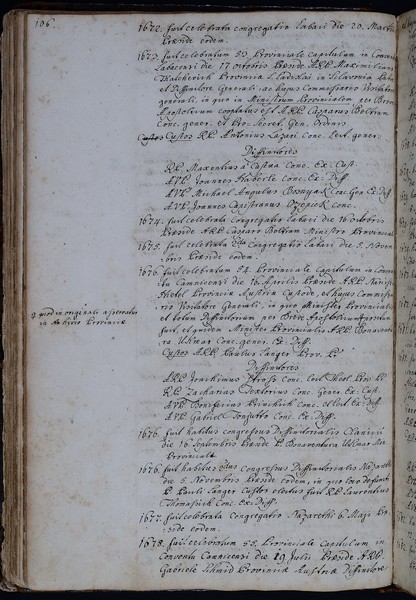 106.
1672. fuit celebrata congregatio Labaci die 20. Martii
Præside eodem.
1673. fuit celebratum 53. Provinciale Capitulum in Conventu
Labacensi die 17 octobris Præside A.R.P. Maximiliano
Provinciæ S. Ladislai in Sclavonia
et Diffinitore Generali, ac hujus Commissario Visitatore
generali, in quo in Ministrum Provincialem per Breve
Apostolicum est A.R.P. Casparus Boltram
Conc. gener. et Pro. Secret. Gen. Ordinis
Custos R.P. Antonius Lazari Conc. Lect. gener.
Diffinitores
R.P. Maxentius a Conc. Ex: Cust.
A.V.P. Joannes Haberle Conc. Ex: Diff
A.V.P. Michael Angelus Conc. Gen Ex: Diff
A.V.P. Joannes Capistranus conc.
1674. fuit celebrata Congregatio Labaci die 16 octobris
Præside A.R.P. Casparo Boltram Ministro Provinciali
1675. fuit celebrata 2da Congregatio Labaci die 5. Novem-
bris Præside eodem.
1676. fuit celebratum 54. Provinciale Capitulum in Conven-
tu Camnicensi die 16. Aprilis Præside A.R.P.
Provinciæ Austriæ Custode, et hujus Commissa-
rio Visitatore Generali, in quo Minister Provincialis
et totum Diffinitorium per Breve Apostolicum
fuit, et quidem Minister Provincialis A.R.P. Bonaventu-
ra Ulmar Conc. gener. Ex: Diff.
Custos A.R.P. Paulus Langer Prov. P.
Diffinitores
A.R.P. Joachimus Conc. Lect. Theol. Prov P.
R.P. Zacharias Textorius Conc. Gener Ex: Cust.
A.V.P. Bonifacius Heinrich Conc. et Lect Ex: Diff.
A.V.P. Gabriel Conc. Ex: Diff.
1676. fuit habitus congressus Diffinitorialis
die 16 Septembris Præside P. Bonaventura Ulmar
Provinciali
1676. fuit habitus 2dus Congressus Diffinitorialis Nazarethi
die 5. Novembris Præside eodem, in quo loco defuncti
P. Pauli Langer Custos electus fuit R.P. Laurentius
Conc. Ex: Diff.
1677. fuit celebrata Congregatio Nazarethi 6. Maji Præ-
side eodem.
1678. fuit celebratum 55. Provinciale Capitulum in
Conventu Camnicensi die 19 Julii Præside A.R.P.
Gabriele Schmid Provinciæ Austriæ Diffinitore
quod in originali
in Archivo Provinciæ